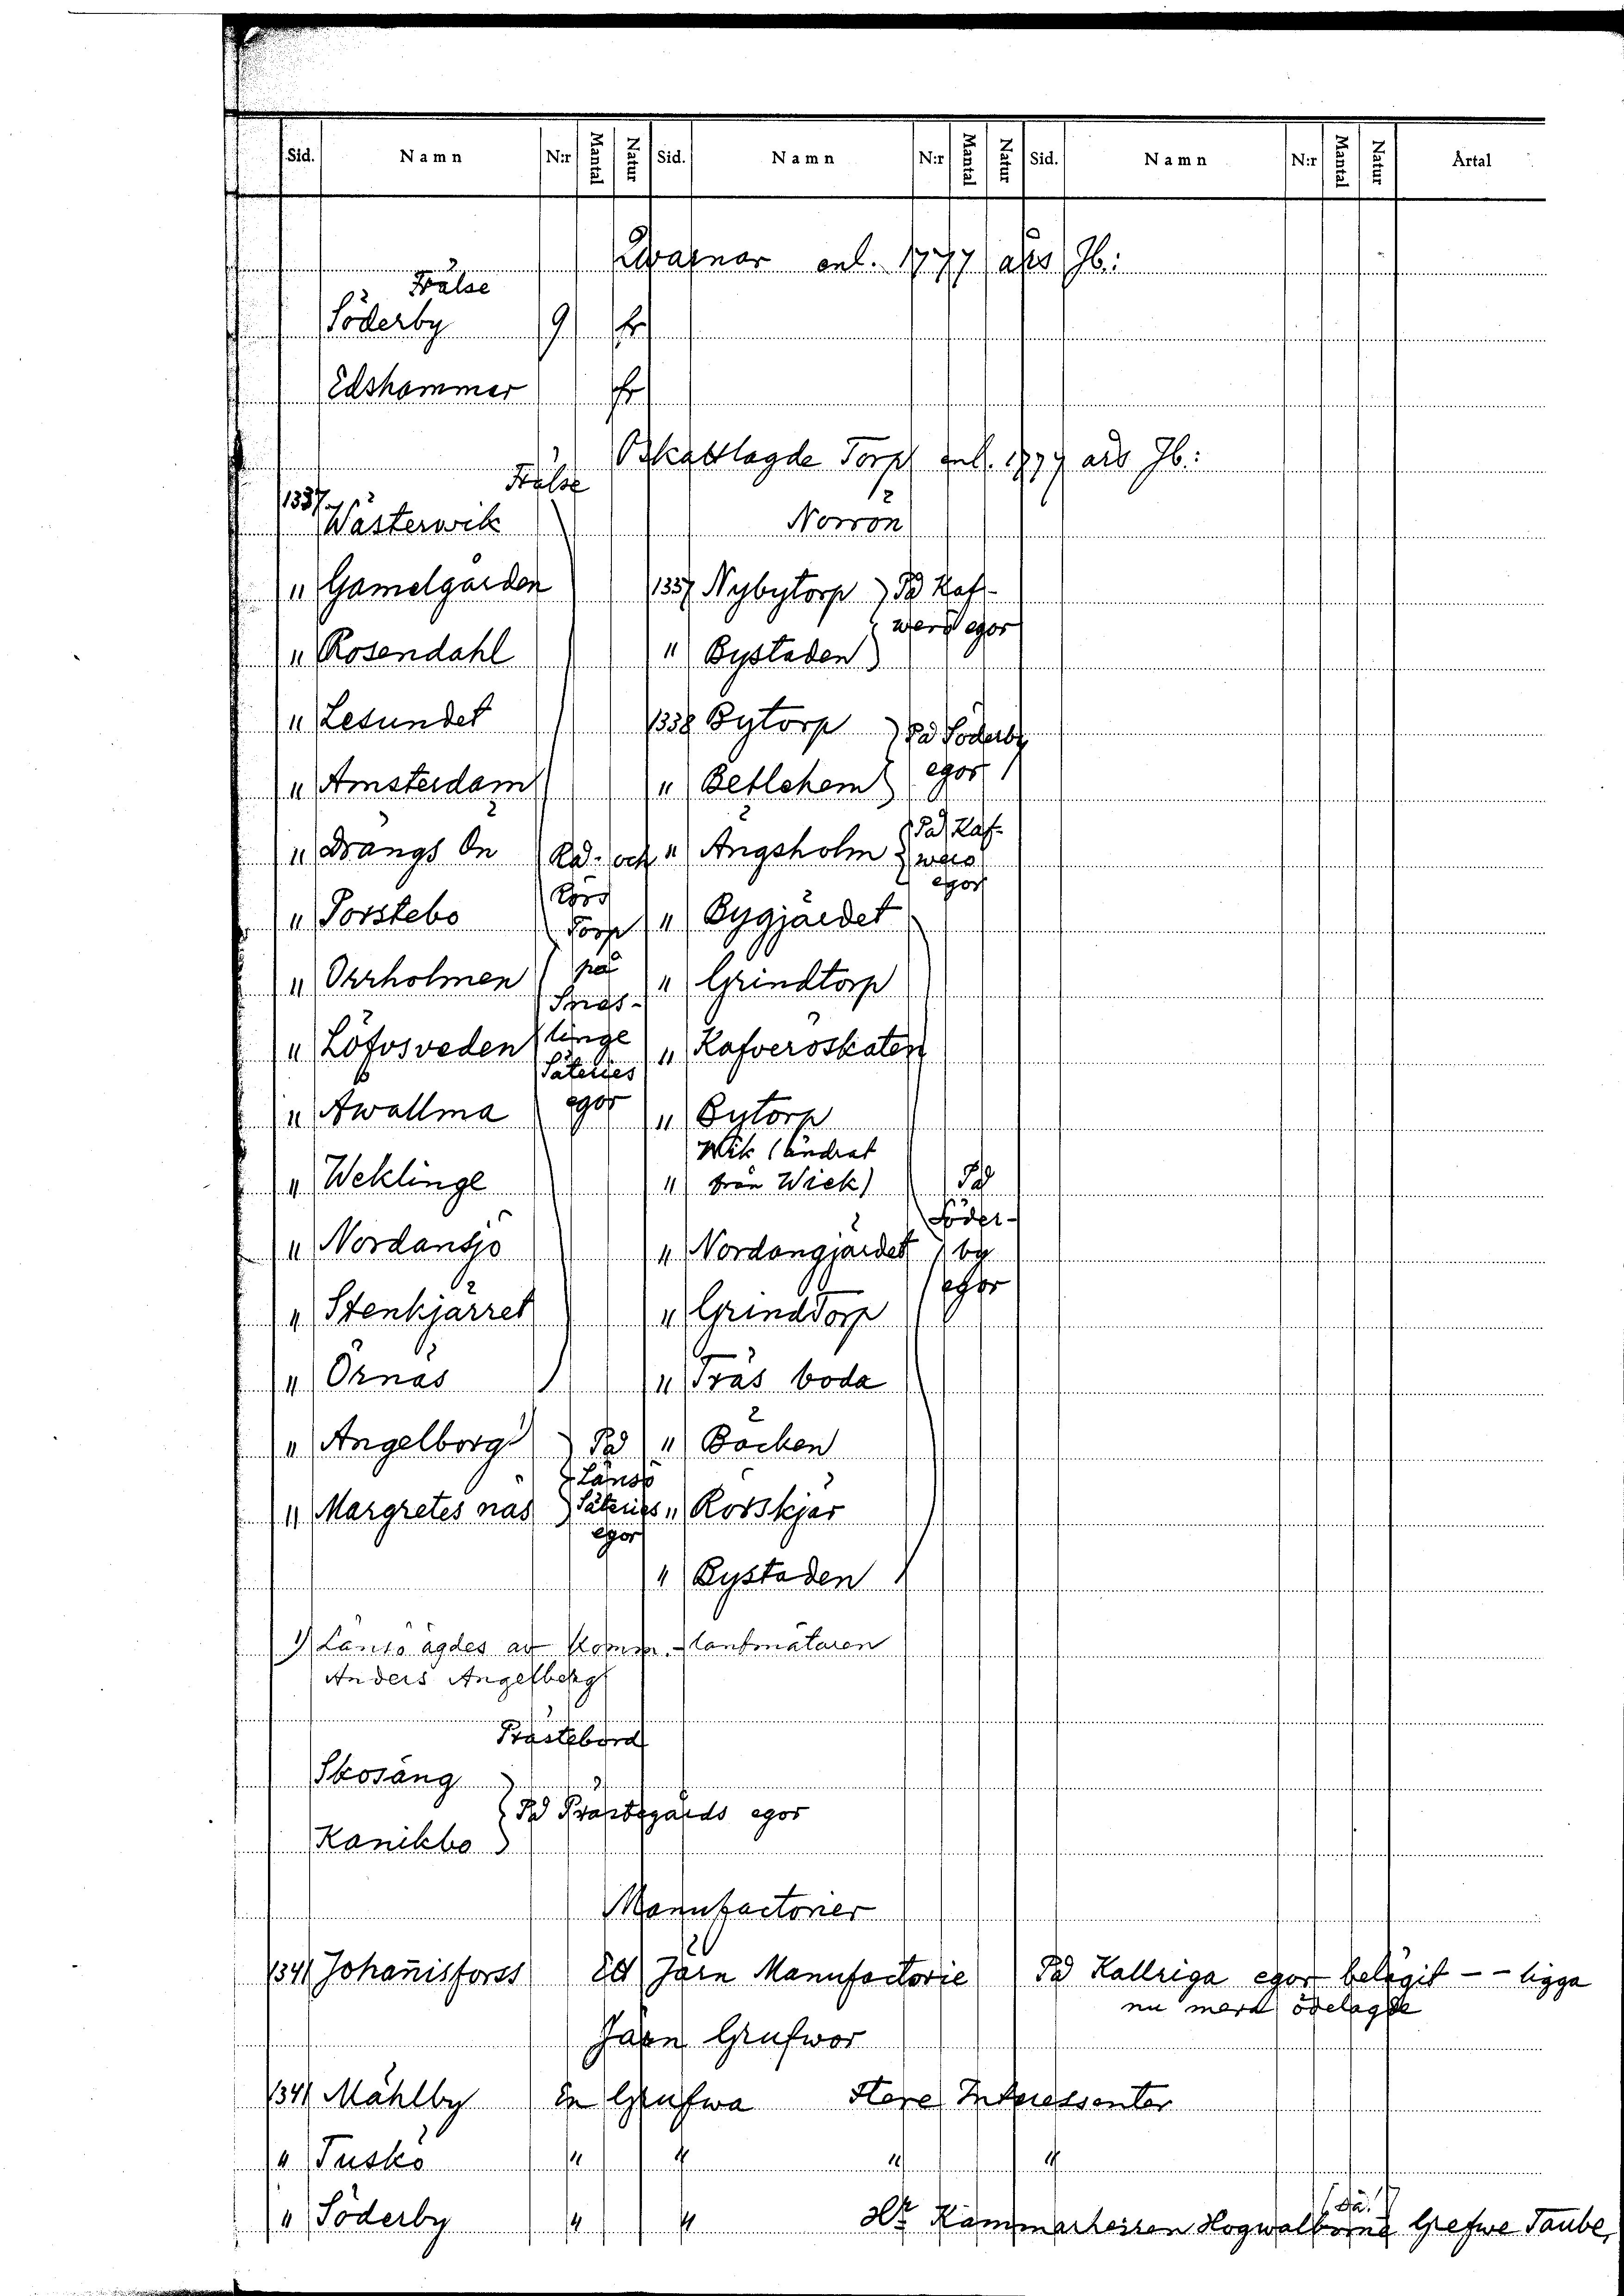 Sid. Namn N:r Mantal Natur Sid. Namn N:r Mantal Natur Sid. Namn N:r Mantal Natur Årtal
Qwarnar enl. 1777 års Jb:
Frälse
Söderby 9 fr
Edshammar fr
Oskattlagde Torp enl. 1777 års Jb:
Frälse
1337 Wästerwik Norrön
" Gamelgården 1337 Nybytorp På Kaf-
werö egor
" Rosendahl " Bystaden
" Lesundet 1338 Bytorp På Söderby
egor
" Amsterdam " Betlehem
" Drängs Ön Rå- och " Ängsholm På Kaf-
werö
egor
" Porstebo Rörs
Torp " Bygjärdet
" Orrholmen på " Grindtorp
Snes-
" Löfösveden linge " Kafveröskaten
Säteries
" Awallma egor " Bytorp
" Weklinge " Wik (ändrat
från Wiek) På
Söder-
" Nordansjö " Nordangjärdet by
egor
" Stenkjärret " Grindtorp
" Örnäs " Träs boda
" Angelborg 1) På " Backen
Länsö
" Margretes näs Säteries " Rörskjär
egor
" Bystaden
1) Länsö ägdes av Komm.-lantmätaren
Anders Angelberg
Prästebord
Skosäng
På Prästegårds egor
Kanikbo
Manufactorier
1341 Johañisforss Ett Järn Manufactorie På Kallriga egor belägit -- ligga
nu mera ödelagde
Järn Grufwor
1341 Mählby En Grufwa flere Interessenter
" Tuskö " " " "
" Söderby " " Hr Kammarherren Hogwalborne (så!) Grefwe Taube,